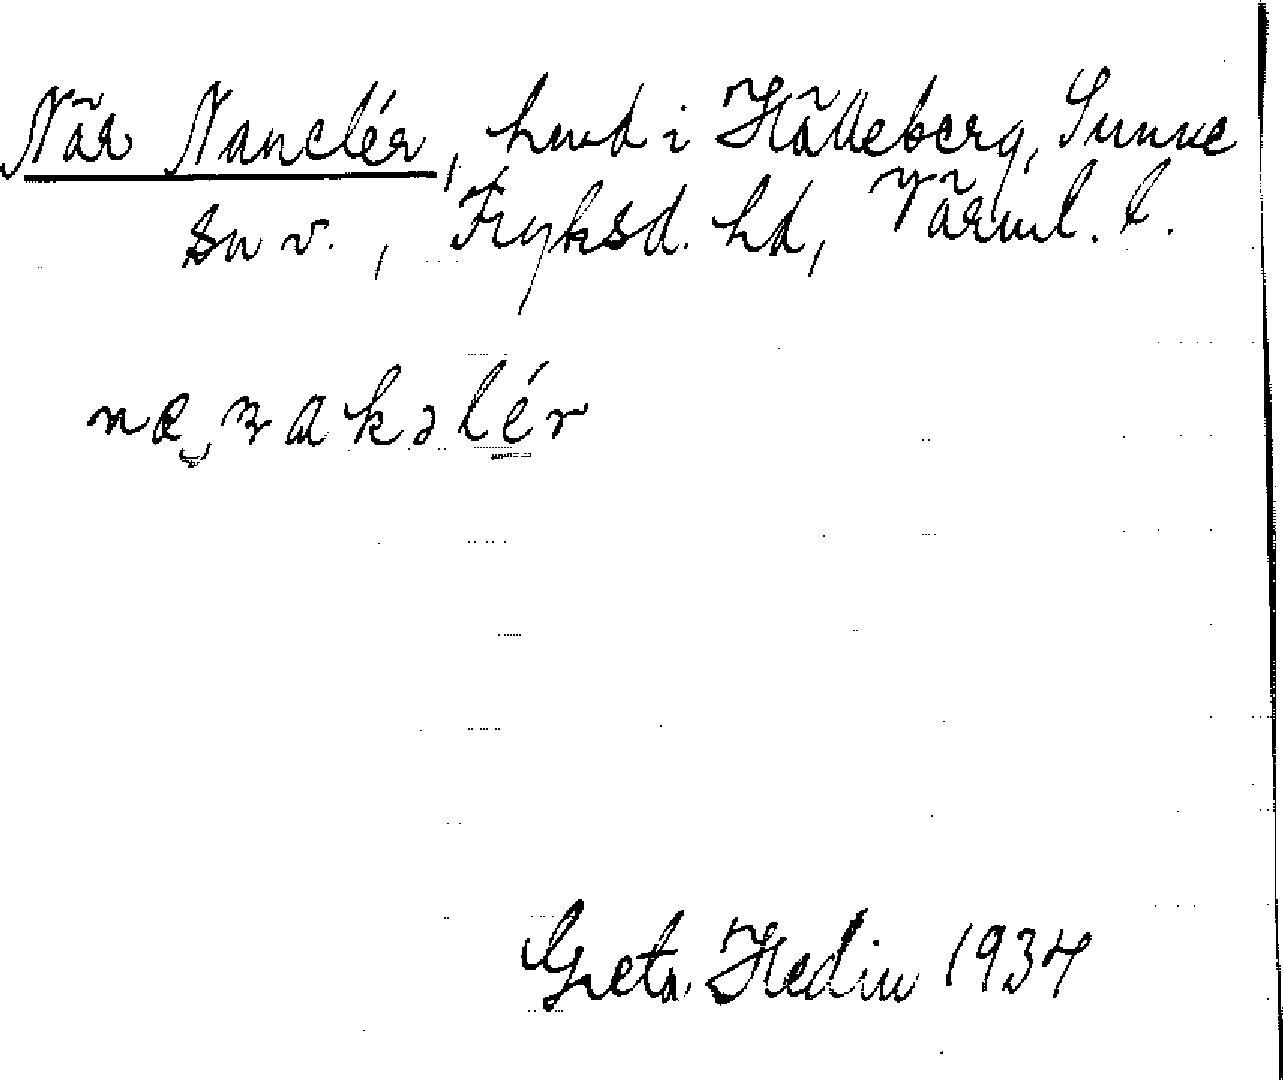 När Nanclér, hmd i Hälleberg, Sunne
sn v., Fryksd. hd, Värml. l.
Greta Hedin 1934